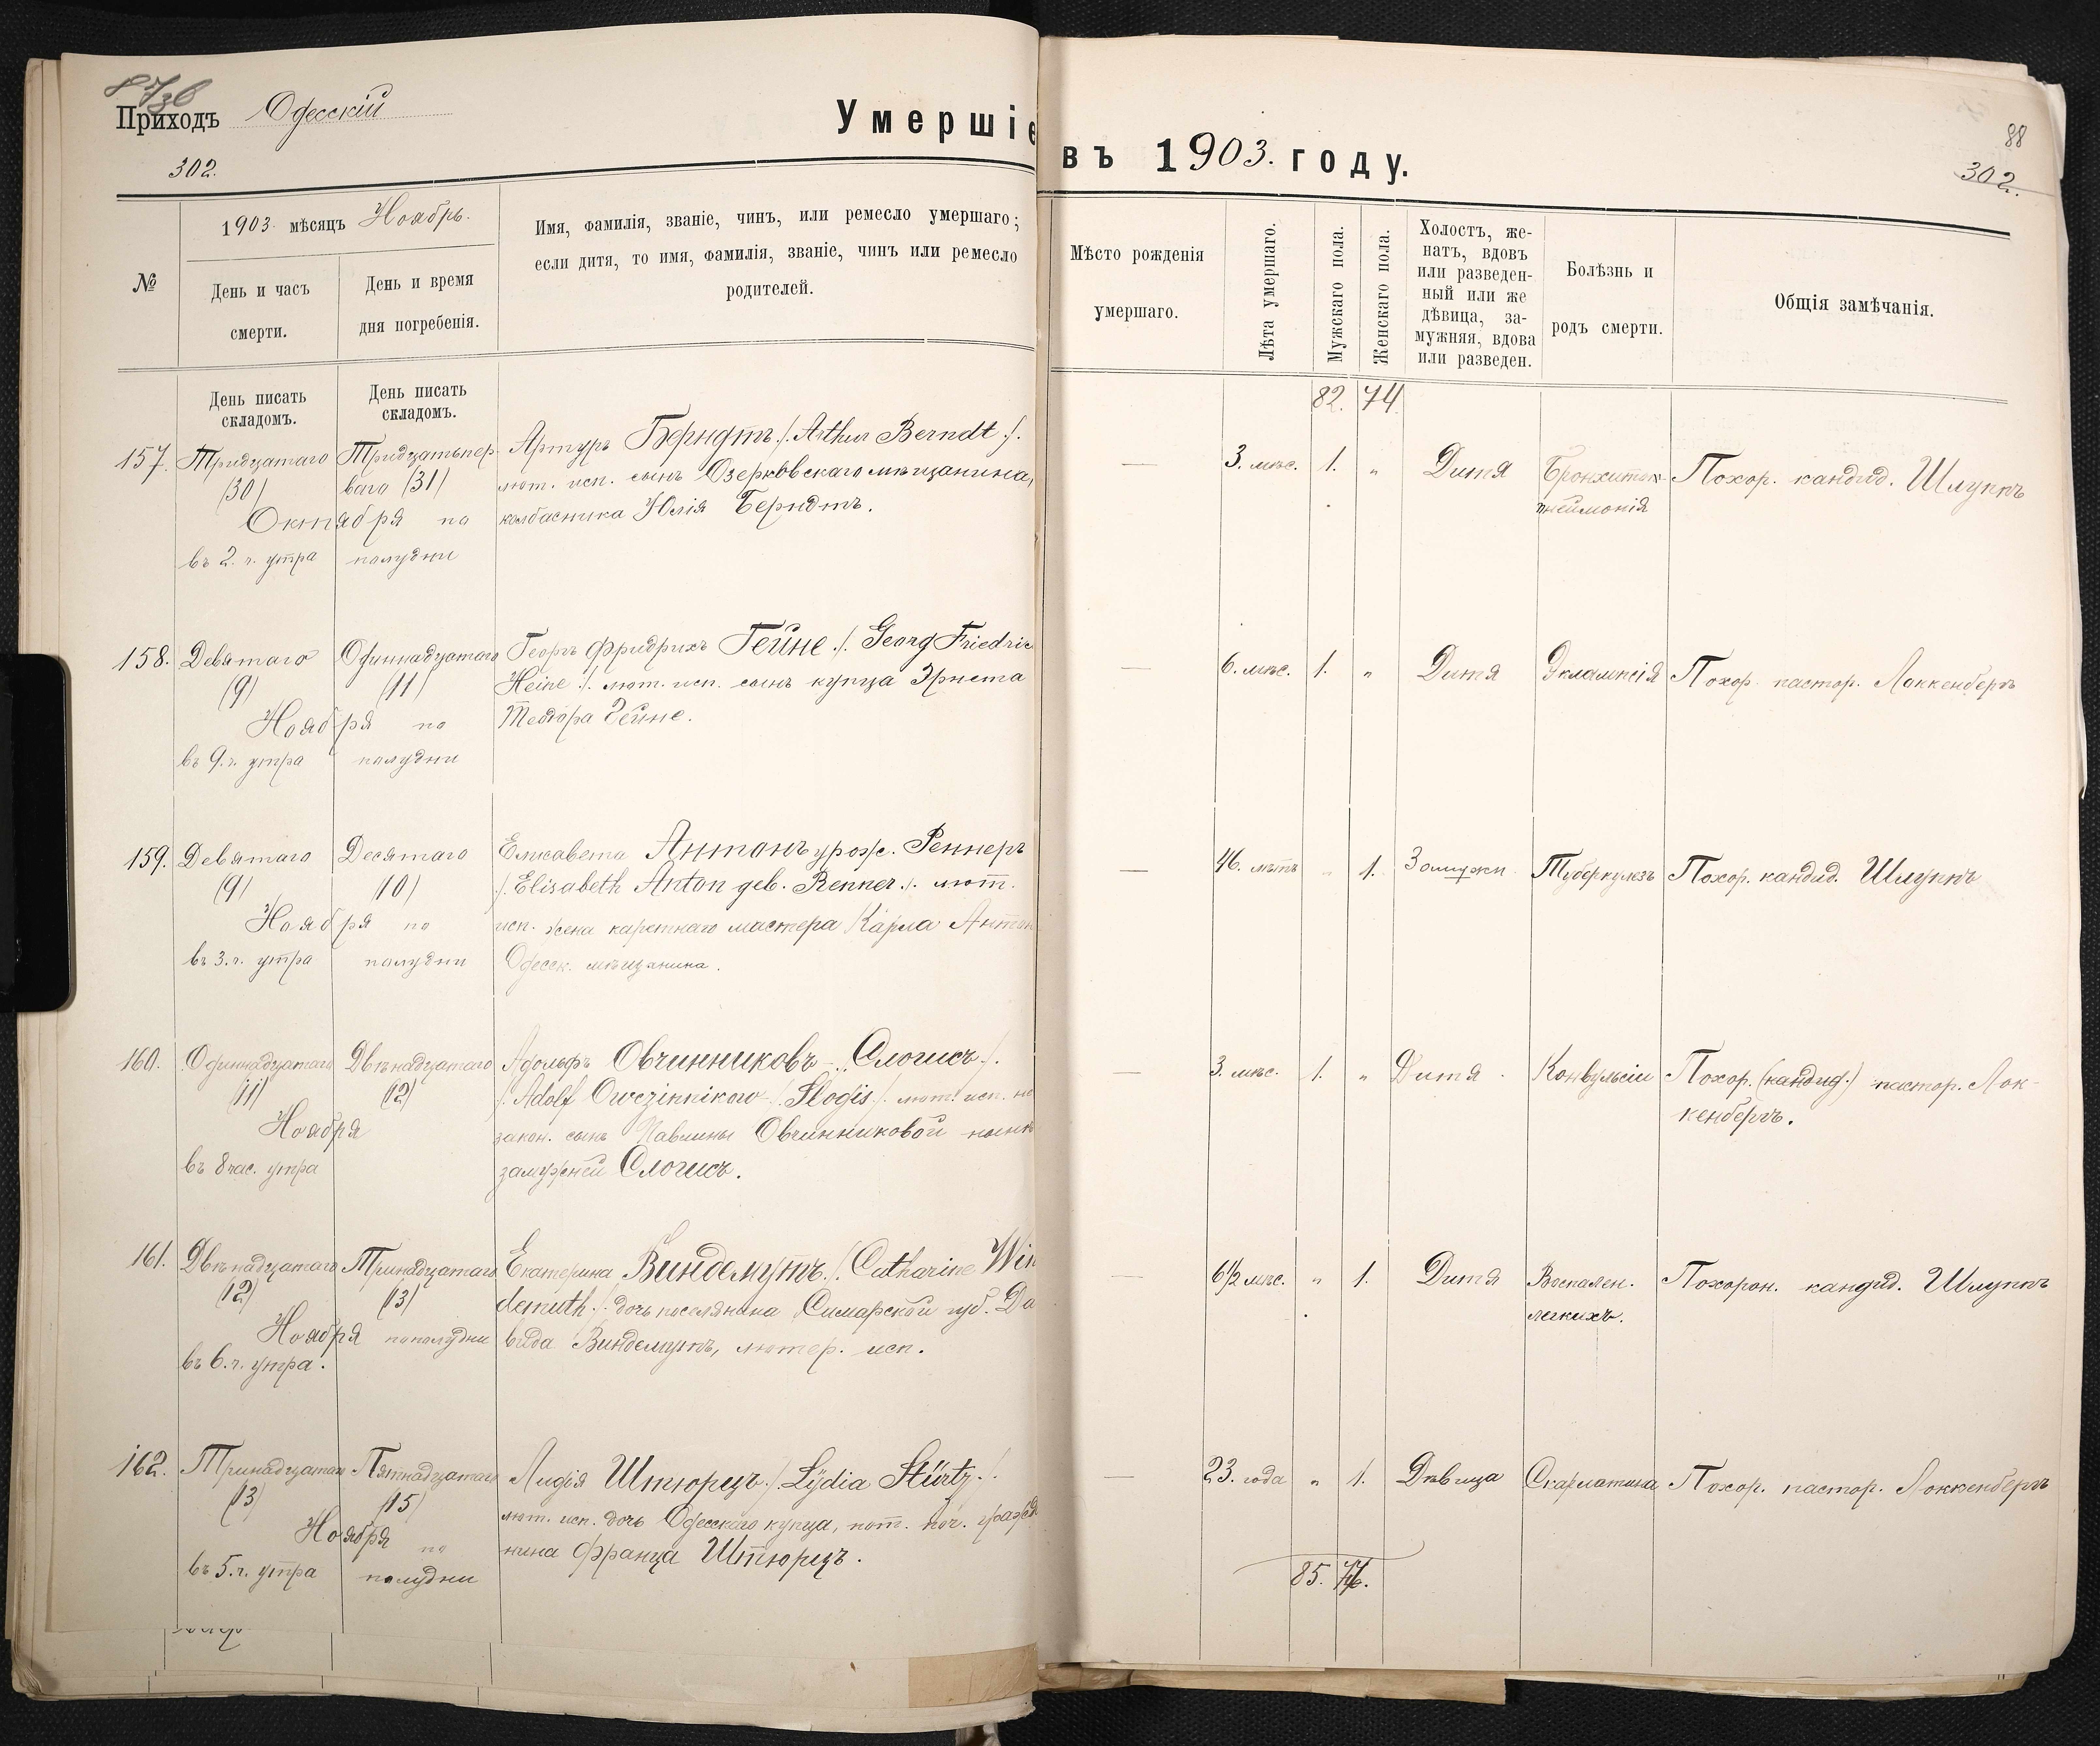 87 зв
Приходъ Одесскій
Умершіе
302.
№
1903 мѣсяцъ Ноябрь.
День и часъ
смерти.
День и время
дня погребенія.
Имя, фамилія, званіе, чинъ, или ремесло умершаго;
если дитя, то имя, фамилія, званіе, чинъ или ремесло
родителей.
День писать
складомъ.
День писать
складомъ.
157. Тридцатаго Тридцатьпер-
(30) ваго (31)
Октября по
въ 2. ч. утра полудни
Артуръ Берндтъ ./. Arthur Berndt ./.
лют. исп. сынъ Озерковскаго мѣщанина,
колбасника Юлія Берндтъ.
158. Девятаго Одиннадцатаго
(9) (11)
Ноября по
въ 9. ч. утра полудни
Георгъ Фридрихъ Гейне ./. Georg Friedric
Heine ./. лют. исп. сынъ купца Эрнста
Теодора Гейне.
159. Девятаго Десятаго
(9) (10)
Ноября по
въ 3. ч. утра полудни
Елисавета Антонъ урож. Реннеръ
./. Elisabeth Anton geb. Renner ./. лют.
исп. жена каретнаго мастера Карла Антон
Одесск. мѣщанина.
160. Одиннадцатаго Двѣнадцатаго
(11) (12)
Ноября
въ 8 час. утра
Адольфъ Овчинниковъ - Слогисъ ./.
./. Adolf Owczinnikow - Slogis ./. лют. исп. не
закон. сынъ Павлины Овчинниковой нынѣ
замужней Слогисъ.
161. Двѣнадцатаго Тринадцатаго
(12) (13)
Ноября пополудни
въ 6. ч. утра.
Екатерина Виндемутъ ./. Catharine Win
demuth ./. дочь поселянина Самарской губ. Да
вида Виндемутъ, лютер. исп.
162. Тринадцатаго Пятнадцатаго
(13) (15)
Ноября по
въ 5. ч. утра полудни
Лидія Штюрцъ ./. Lydia Stürtz ./.
лют. исп. дочь Одесскаго купца, пот. поч. гражда
нина Франца Штюрцъ.
въ 1903. году.
88
302.
Мѣсто рожденія
умершаго.
Лѣта умершаго.
Мужскаго пола.
Женскаго пола.
Холостъ, же-
натъ, вдовъ
или разведен-
ный или же
дѣвица, за-
мужняя, вдова
или разведен.
Болѣзнь и
родъ смерти.
Общія замѣчанія.
82. 74
— 3. мѣс. 1. „ Дитя Бронхитъ- Похор. кандид. Шлуппъ
пнеймонія
— 6. мѣс. 1. „ Дитя Эклампсія Похор. пастор. Локкенбергъ
— 46. лѣтъ „ 1. Замужн. Туберкулезъ Похор. кандид. Шлуппъ
— 3. мѣс. 1. „ Дитя Конвульсіи Похор. (кандид.) пастор. Лок-
кенбергъ.
— 6 1/2 мѣс. „ 1. Дитя Воспален. Похорон. кандид. Шлуппъ
легкихъ.
— 23. года „ 1. Дѣвица Скарлатина Похор. пастор. Локкенбергъ
85. 77.